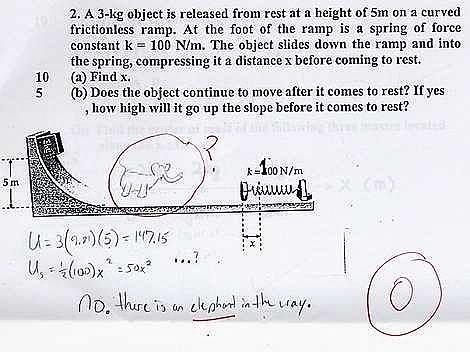 2. A 3-kg object is released from rest at a height of 5m on a curved
frictionless ramp. At the foot of the ramp is a spring of force
constant k = 100 N/m. The object slides down the ramp and into
the spring, compressing it a distance x before coming to rest.
10 (a) Find x.
5 (b) Does the object continue to move after it comes to rest? If yes
, how high will it go up the slope before it comes to rest?
?
5 m
k = 100 N/m
x
U = 3(9.81)(5) = 147.15
Us = ½(100)x² = 50x² ...?
NO. there is an elephant in the way.
0